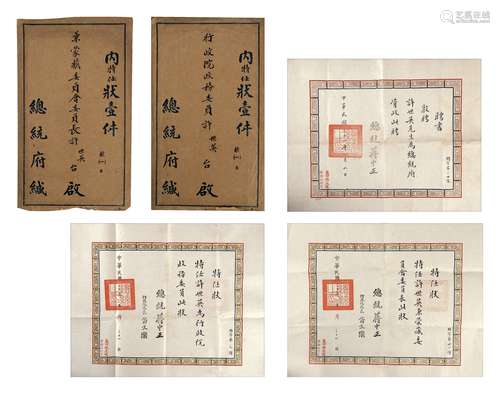 内特任狀壹件
兼蒙藏委員會委員長許世英 台啟
總統府緘
内特任狀壹件
行政院政務委員許世英 台啟
總統府緘
聘書
敦聘
許世英先生為總統府
資政此聘
總統 蔣中正
中華民國
特任狀
特任許世英為行政院
政務委員此狀
總統 蔣中正
中華民國
特任狀
特任許世英兼蒙藏委
員會委員長此狀
總統 蔣中正
中華民國